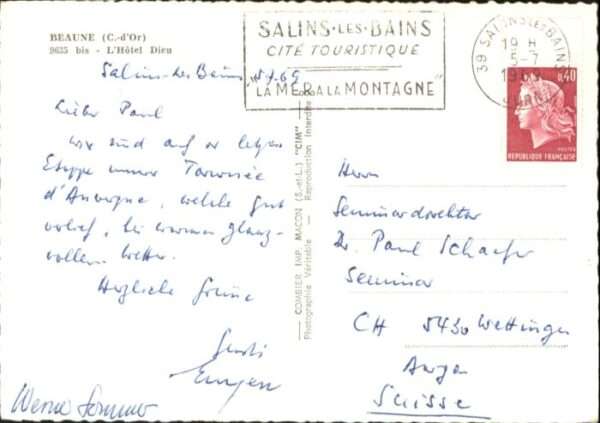 BEAUNE (C.-d'Or)
9635 bis - L'Hôtel Dieu
SALINS-LES-BAINS
CITÉ TOURISTIQUE
"LA MER A LA MONTAGNE"
39 SALINS-LES-BAINS
19 H
5-7
1969
JURA
0,40
POSTES
REPUBLIQUE FRANÇAISE
Salins-les-Bains, 5.7.69
Lieber Paul
wir sind auf der letzten
Etappe unserer Tournée
d'Auvergne, welche gut
verlief, bei warmem glanz-
vollem Wetter.
Herzliche Grüsse
Eugen
Werner Sommer
COMBIER IMP. MACON (S.-et-L.) "CIM"
Photographie Véritable - Reproduction Interdite
Herrn
Seminardirektor
Dr. Paul Schaefer
Seminar
CH 5430 Wettingen
Aargau
Suisse